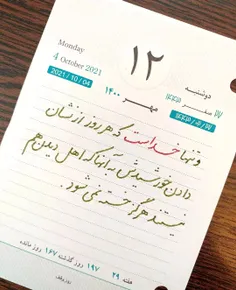 Monday
4 October 2021
2021 / 10 / 04
۱۲
مهر ۱۴۰۰
دوشنبه
۲۷ صفر ۱۴۴۳
و تنها خداست که هر روز از نشان
دادن خورشیدش به آنها که اهل دیدن هم
نیستند هرگز خسته نمی‌شود.
هفته ۲۹ ۱۹۷ روز گذشته ۱۶۷ روز مانده